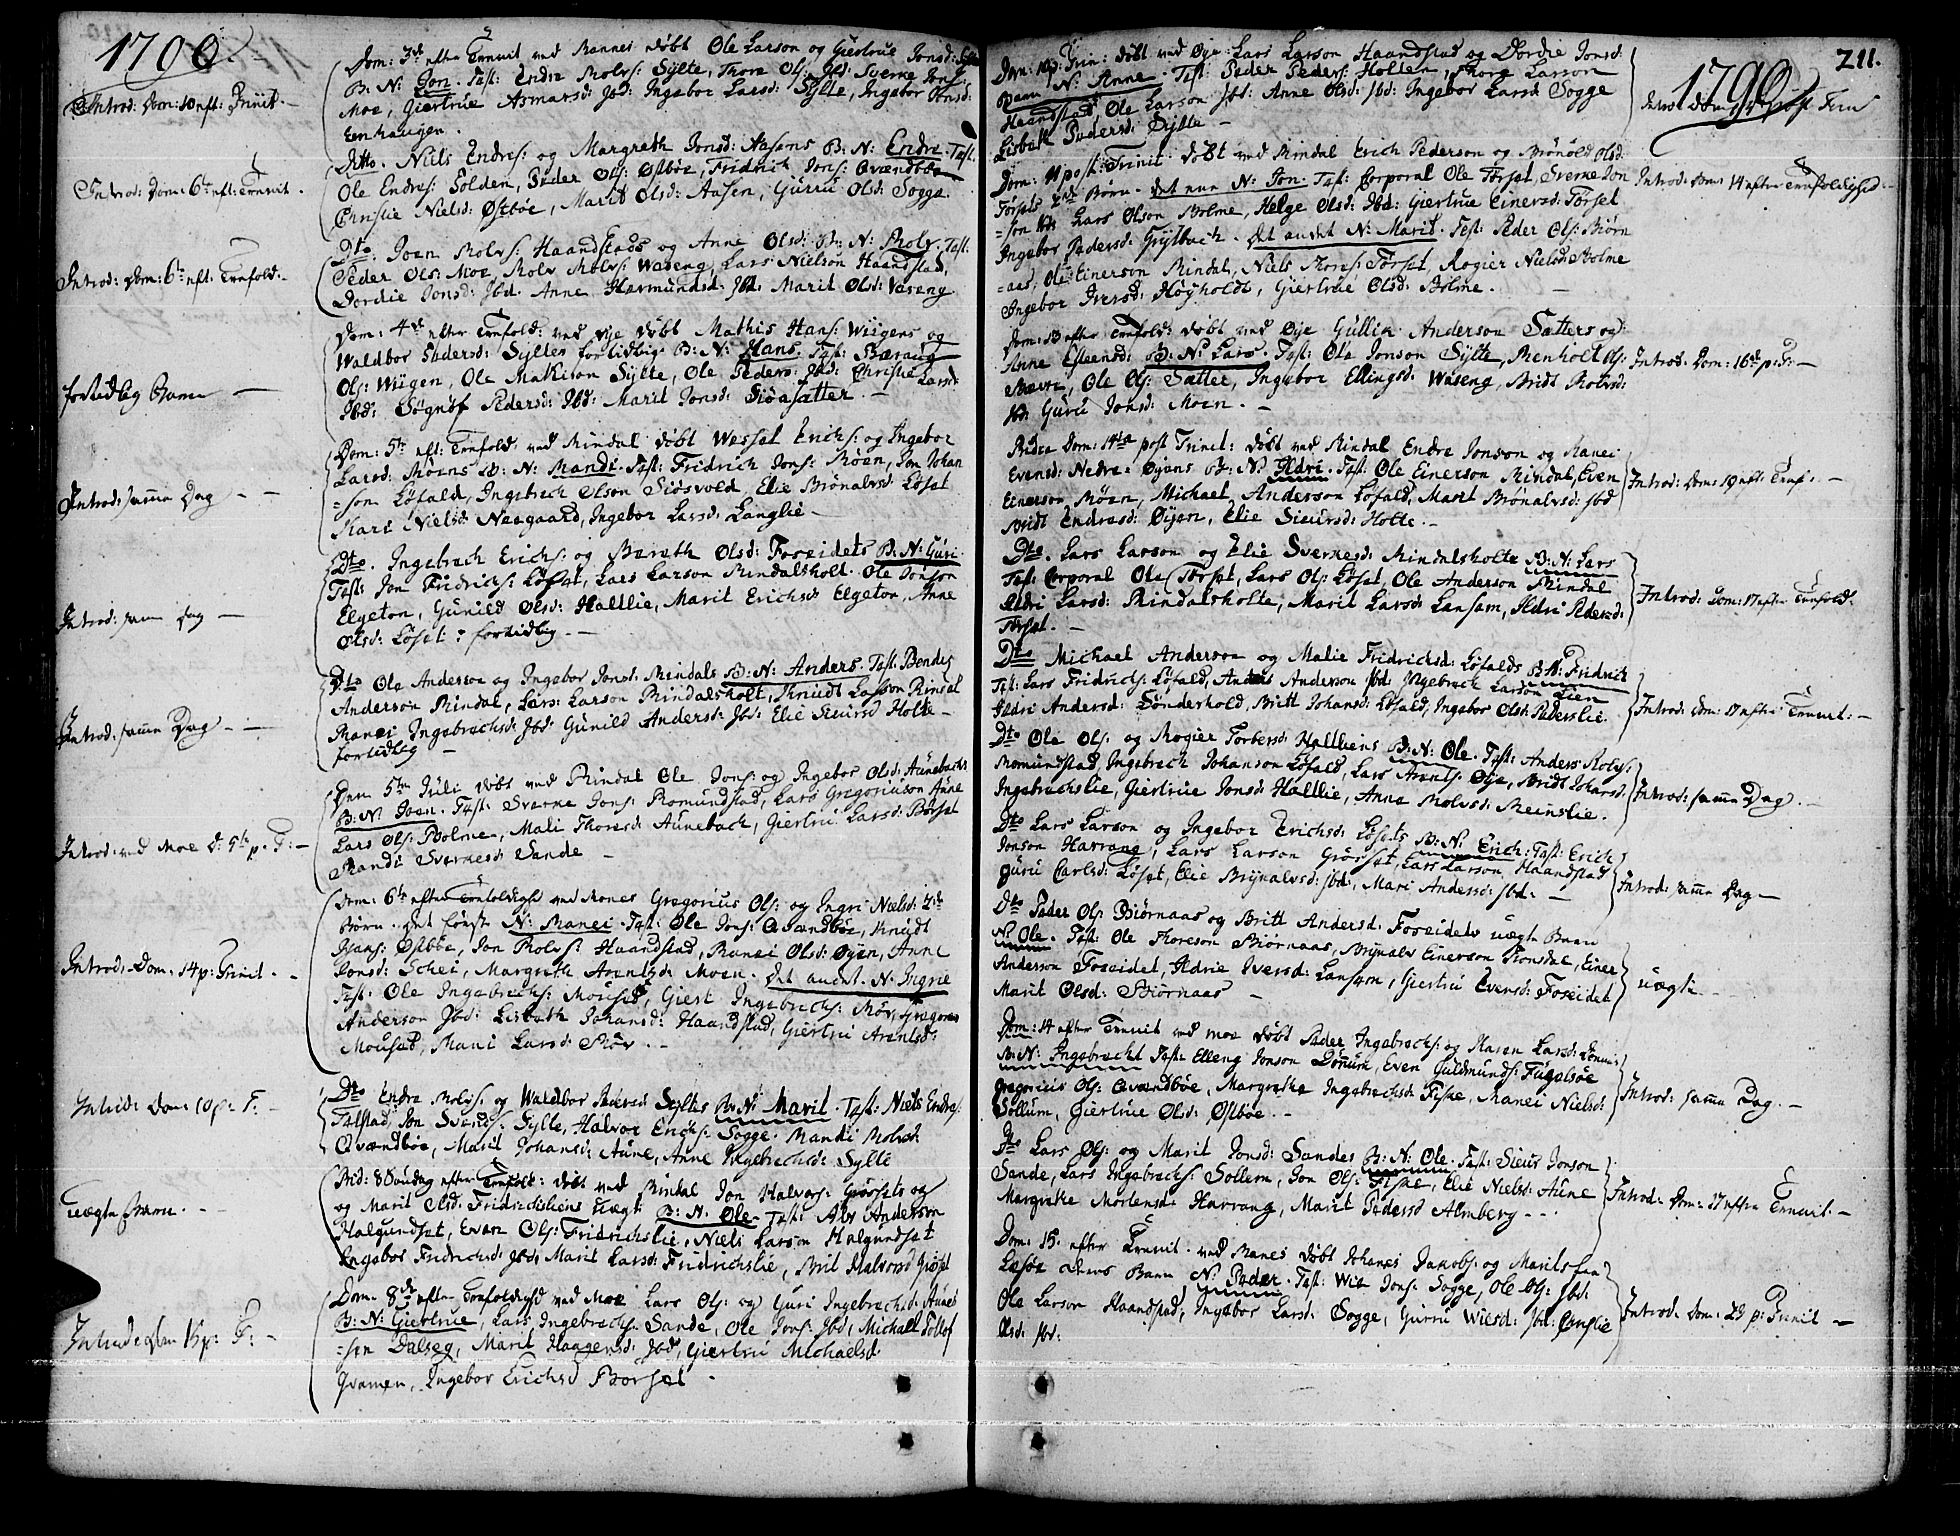 1790.
Introd: Dom: 10 eft: Trinit. –
Dom: 3de efter Trinit ved Rannes døbt Ole Larson og Giertrue Jonsd: Sylte
B: N: Jon. Test: Endre Rolvs: Sylte, Thore Ols: Ibd: Sverne Jons:
Moe, Giertrue Asmarsd: Ibd: Ingebor Larsd: Sylte, Ingebor Jonsd:
Eenhaugen.
Introd: Dom: 6te eft: Trinit. –
Ditto. Niels Endres: og Margreth Jonsd: Aasens B: N: Endre. Test:
Ole Endres: Solden, Peder Ols: Østbøe, Fridrich Jons: Qvændbøe
Christie Nielsd: Østbøe, Marit Olsd: Aasen, Gurru Olsd: Sogge.
Introd: Dom: 6te eft: Trefold: –
Dto. Joen Rolvs: Haandstads og Anne Olsd: B: N: Rolv. Test:
Peder Ols: Moe, Rolv Rolvs: Waseng, Lars Nielson Haandstad,
Dordie Jonsd: Ibd. Anne Harmundsd: Ibd: Marit Olsd: Vaseng
fortidlig Barn –
Dom: 4de efter Trefold: ved Øye døbt Mathis Hans: Wiigens og
Waldbor Pedersd: Syltes fortidlig B: N: Hans. Test: Bærang
Ols: Wiigen, Ole Mathison Sylte, Ole Peders: Ibd: Christie Larsd:
Ibd: Søgnøf Pedersd: Ibd: Marit Jonsd: Siøasætter. –
Introd: samme Dag – –
Dom: 5te eft: Trefold: ved Rindal døbt Wessel Erichs: og Ingebor
Larsd: Moens B: N: Randi. Test: Fridrich Jons: Røen, Jon Johan
=son Løfald, Ingebrech Olson Siøsvold, Elie Brønalvsd: Løset
Kari Nielsd: Neegaard, Ingebor Larsd: Langlie –
Introd: samme Dag –
Dto. Ingebrech Erichs: og Bereth Olsd: Foseidets B: N: Guri.
Test: Jon Fridrichs: Løset, Lars Larson Rindalsholt. Ole Jonson
Elgeton, Gunild Olsd: Halllie, Marit Erichsd: Elgeton, Anne
Olsd: Løset: fortidlig. –
Introd: samme Dag – –
Dto Ole Anderson og Ingebor Jonsd: Rindals B: N: Anders. Test: Bendix
Anderson Rindal, Lars: Larson Rindalsholt, Knudt Larson Rinset
Ranei Ingebrechsd: Ibd: Gunild Andersd: Ibd: Elie Sieursd Holte –
fortidlig –
Introd: ved Moe D: 9te p. T: –
Den 5te Juli døbt ved Rindal Ole Jons: og Ingebor Olsd: Aunebachs
B: N: Joen. Test: Sverne Jons: Romundstad, Lars Gregoriuson Aune
Lars Ols: Bolme, Mali Thoresd: Aunebach, Giertru Larsd: Børset
Randi Svernesd: Sande –
Introd: Dom: 14 p: Trinit. –
Dom: 6te efter Trefoldighed ved Ranes Gregorius Ols: og Ingri Nielsd: 2de
Børn. Det første N: Ranei. Test: Ole Jons: Qvændbøe, Knudt
Hans: Østbøe, Jon Rolvs: Haandstad, Ranei Olsd: Øyen, Anne
Jonsd: Schei, Margreth Arentsd: Moen. det andet N: Ingrie
Test: Ole Ingebrechs: Mousæd, Giert Ingebrechs: Røv, Gregorius
Anderson Ibd: Lisbeth Johansd: Haandstad, Giertrü Arentsd:
Mousæd, Rani Larsd: Røv. –
Introd: Dom: 10 p: T: –
Dto Endre Rolvs: og Waldbor Pedersd Syltes B: N: Marit. Test: Niels Endres:
Tælstad, Jon Svends: Sylte, Halvor Erichs: Sogge. Randi Rolvsd:
Qvændbøe, Marit Johansd: Aune, Anne Ingebrechsd: Sylte
uægte Barn. –
Dnd: 8 Søndag efter Trefold: døbt ved Rindal Jon Halvors: Grøsets og
og Marit Olsd: Fridrichsliens uægte B: N: Ole. Test: Alv Anderson
Halgundset, Even Ols: Fridrichslie, Niels Larson Halgundset
Ingebor Fridrichsd: Ibd: Marit Larsd: Fridrichslie, Brit Halvorsd Grøset
Introd: Dom 15 p: T: –
Dom: 8de efter Trefoldighed ved Moe Lars Ols: og Guri Ingebrechsd: Aunes
B: N: Giertrue, Lars Ingebrechs: Sande, Ole Jons: Ibd, Michael Tollof
=sen Dalseg, Marit Haagensd: Ibd, Giertrü Michaelsd:
Qvamen, Ingebor Erichsd Børset.
211.
1790
Dom: 10de Trin: døbt ved Øye Lars Larson Haandstad og Dordie Jonsd:
Barn N: Anne. Test: Peder Peders: Holden, Thore Larson
Haandstad, Ole Larson Ibd: Anne Olsd: Ibd: Ingebor Larsd: Sogge
Lisbeth Pedersd: Sylte –
Dom: 11 post: Trinit: døbt ved Rindal Erich Pederson og Brønold Olsd:
Tørsets 2de Børn. det ene N: Jon. Test: Corporal Ole Tørset, Sverne Jon
=son Ibd: Lars Olson Bolme, Helge Olsd: Ibd: Giertrue Einersd: Tørset
Ingebor Pedersd: Grytbach. Det andet N: Marit. Test: Peder Ols: Biørn
=aas, Ole Einerson Rindal, Niels Thores: Tørset, Rogier Nielsd: Bolme
Ingebor Iversd: Høyholdt, Giertrue Olsd: Bolme. –
Introd: Dom: 14 efter Trefoldighed. –
Dom: 13 efter Trefold: døbt ved Øye Gullik Anderson Sætters og
Anne Esteensd: B: N: Lars. Test: Ole Jonson Sylte, Renholt Ols:
Bævre, Ole Ols: Sætter, Ingebor Ellingsd: Waseng, Bridt Rolvsd:
Ibd: Guru Jonsd: Moen. –
Introd: Dom: 16de p: T: –
Pridie Dom: 14ta post Trinit: døbt ved Rindal Endre Jonson og Ranei
Evensd: Nedre=Øyens B: N: Ildri. Test: Ole Einerson Rindal, Even
Einerson Røen, Michael Anderson Løfald, Marit Brønalvsd: Ibd
Bridt Endresd: Øyen, Elie Sieursd: Holte. –
Introd: Dom: 19 eft: Tref: –
Dto. Lars Larson og Elie Svernesd: Rindalsholte B: N: Lars
Test: Corporal Ole Tørset, Lars Ols: Løset, Ole Anderson Rindal
Ildri Larsd: Rindalsholte, Marit Larsd: Lansem, Ildri Pedersd:
Tørset. –
Introd: Dom: 17 efter Trefold:
Dto Michael Anderson og Malie Fridrichsd: Løfalds B: N: Fridrich
Test: Lars Fridrichs: Løfald, Anders Anderson Ibd: Ingebrech Larson Lien
Ildri Andersd: Sønderhold, Britt Johansd: Løfald, Ingebor Olsd: Pederslie.
Introd: Dom: 17 efter Trinit: –
Dto Ole Ols: og Rogier Torbersd: Halliens B: N: Ole. Test: Anders Rolvs:
Romundstad, Ingebrech Johanson Løfald, Lars Arents: Øye, Bridt Johansd:
Ingebrechslie, Giertrue Jonsd: Hallie, Anne Rolvsd: Reinslie.
Introd: samme Dag. –
Dto Lars Larson og Ingebor Erichsd: Løsets B: N: Erich: Test: Erich
Jonson Harrang, Lars Larson Grøset, Lars Larson, Haandstad
Guru Carlsd: Løset, Elie Brynalvsd: Ibd:, Mari Andersd: Ibd. –
Introd: samme Dag –
Dto Peder Ols: Biørnaas og Britt Andersd. Foseidets uægte Barn
N: Ole. Test: Ole Thoreson Biørnaas, Brynalv Einerson Tronsdal, Einer
Anderson Foseidet, Ildrie Iversd: Lansem, Giertrü Evensd: Foseidet
Marit Olsd: Biørnaas –
uægte –
Dom: 14 efter Trinit ved Moe døbt Peder Ingebrechs: og Maren Larsd: Dønum
B: N: Ingebrecht Test: Elleng Jonson Dønum, Even Guldmunds: Fugelsøe
Gregorius Ols: Qvændbøe, Margrethe Ingebrechsd: Fiske, Ranei Nielsd:
Sollum, Giertrue Olsd: Østbøe. –
Introd: samme Dag. –
Dto Lars Ols: og Marit Jonsd: Sandes B: N: Ole. Test: Sieur Jonson
Sande, Lars Ingebrechs: Sollem, Jon Ols: Fiske, Elie Nielsd: Aune
Margrethe Mortensd: Harrang, Marit Pedersd Almberg –
Introd: Dom: 17 efter Trinit. –
Dom: 15. efter Trinit. ved Ranes døbt Johanes Jacobs: og Marit
deres Barn N: Peder. Test: Wit Jons: Sogge, Ole Ols: Ibd:
Ole Larson Haandstad, Ingebor Larsd: Sogge, Gurru Wiesd: Ibd: Christie
Olsd: Ibd:
Introd: Dom: 29 p: Trinit –